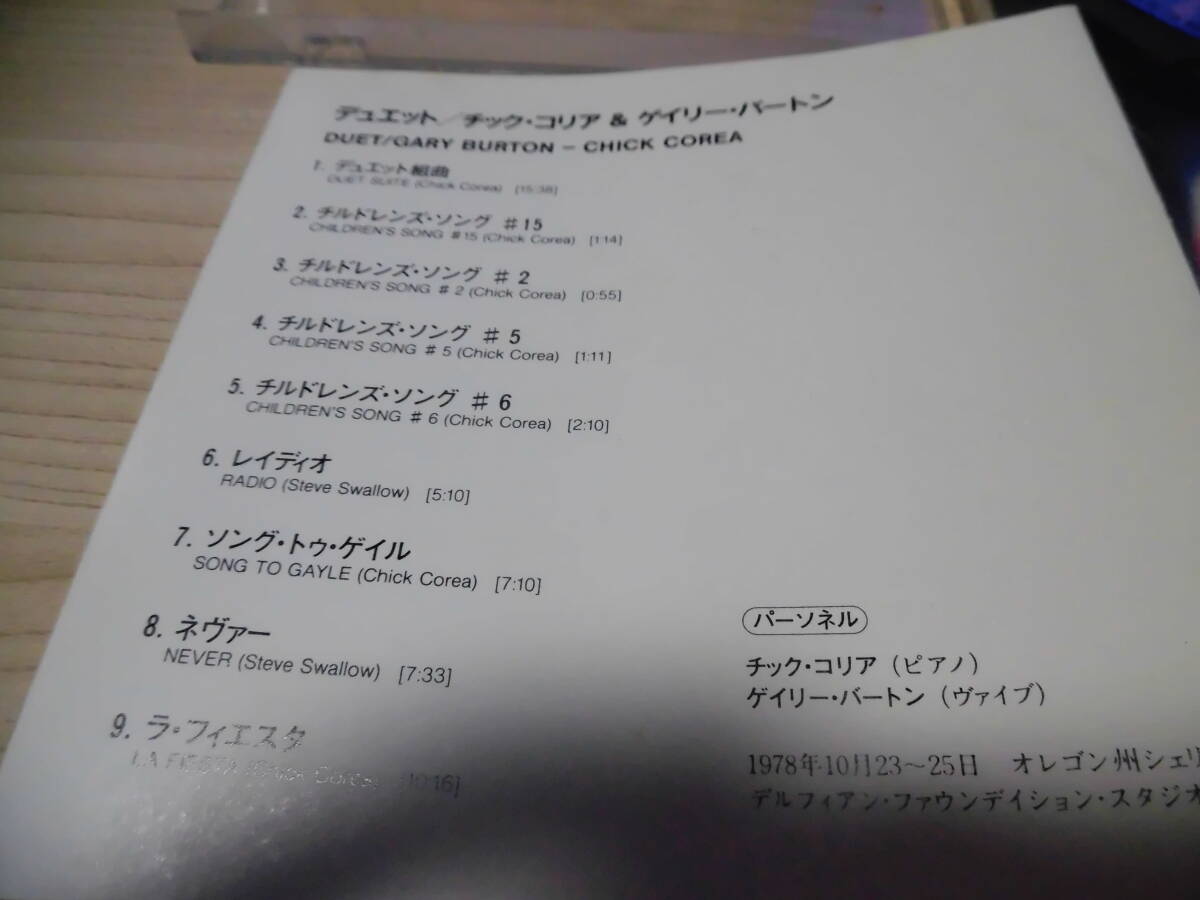 デュエット／チック・コリア & ゲイリー・バートン
DUET/GARY BURTON – CHICK COREA
1. デュエット組曲
DUET SUITE (Chick Corea) [15:38]
2. チルドレンズ・ソング ＃15
CHILDREN'S SONG ＃15 (Chick Corea) [1:14]
3. チルドレンズ・ソング ＃2
CHILDREN'S SONG ＃2 (Chick Corea) [0:55]
4. チルドレンズ・ソング ＃5
CHILDREN'S SONG ＃5 (Chick Corea) [1:11]
5. チルドレンズ・ソング ＃6
CHILDREN'S SONG ＃6 (Chick Corea) [2:10]
6. レイディオ
RADIO (Steve Swallow) [5:10]
7. ソング・トゥ・ゲイル
SONG TO GAYLE (Chick Corea) [7:10]
8. ネヴァー
NEVER (Steve Swallow) [7:33]
9. ラ・フィエスタ
LA FIESTA (Chick Corea) [10:16]
パーソネル
チック・コリア（ピアノ）
ゲイリー・バートン（ヴァイブ）
1978年10月23〜25日 オレゴン州シェリ
デルフィアン・ファウンデイション・スタジオ